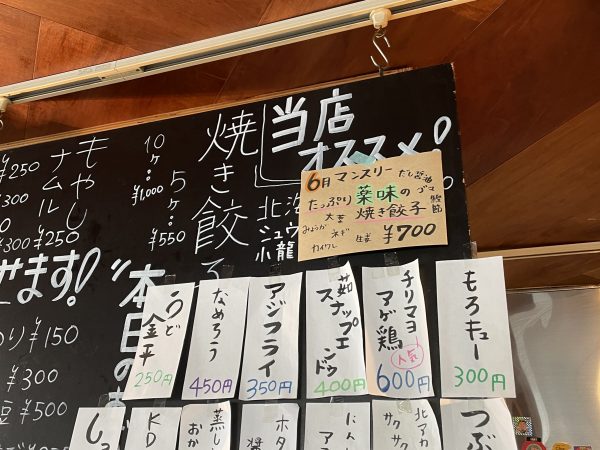 当店
オススメ!
焼き餃子
10ケ…¥1,000
5ケ…¥550
もやし
¥250
ナムル
¥250
¥300
¥300
6月マンスリー
たっぷり薬味の
焼き餃子
¥700
だし醤油
ゴマ
大葉
みょうが
ネギ
カイワレ
生姜
せます!
¥150
¥300
¥500
もろキュー
300円
チリマヨ
アゲ鶏
人気
600円
茹
スナップエンドウ
400円
アジフライ
350円
なめろう
450円
うど
金平
250円
つぶ
北アカ
サクサク
にんに
ホタ
蒸し
KD